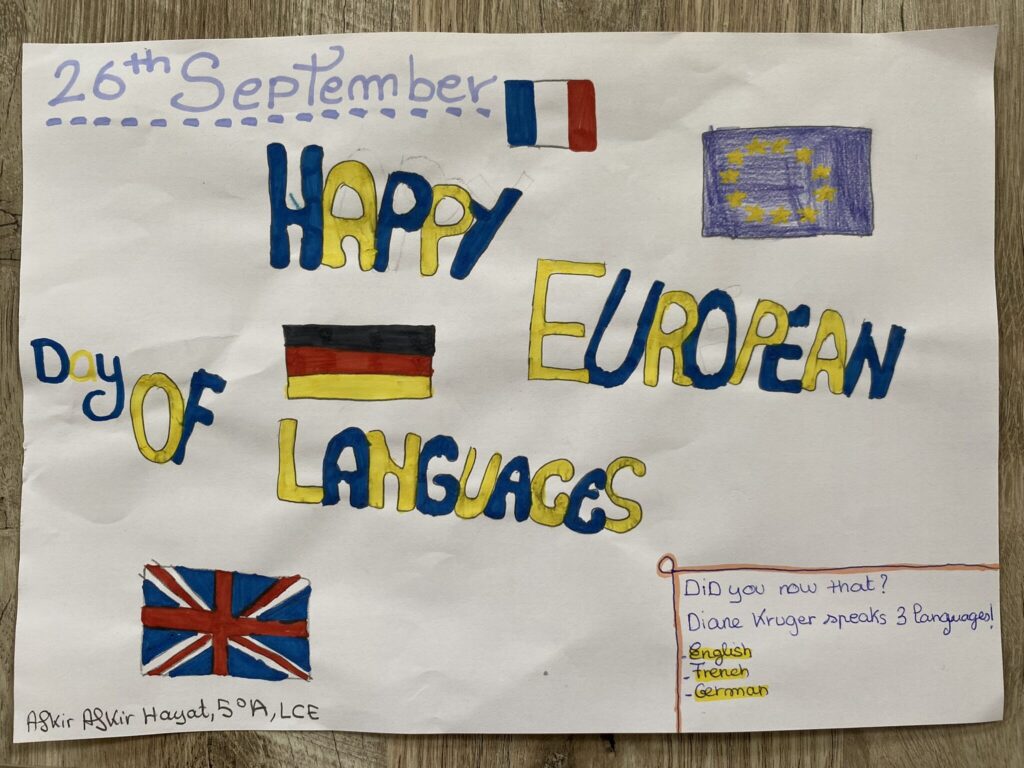 26th September
HAPPY
EUROPEAN
Day OF
LANGUAGES
DiD you now that?
Diane Kruger speaks 3 languages!
- English
- French
- German
Hayat, 5ºA, LCE